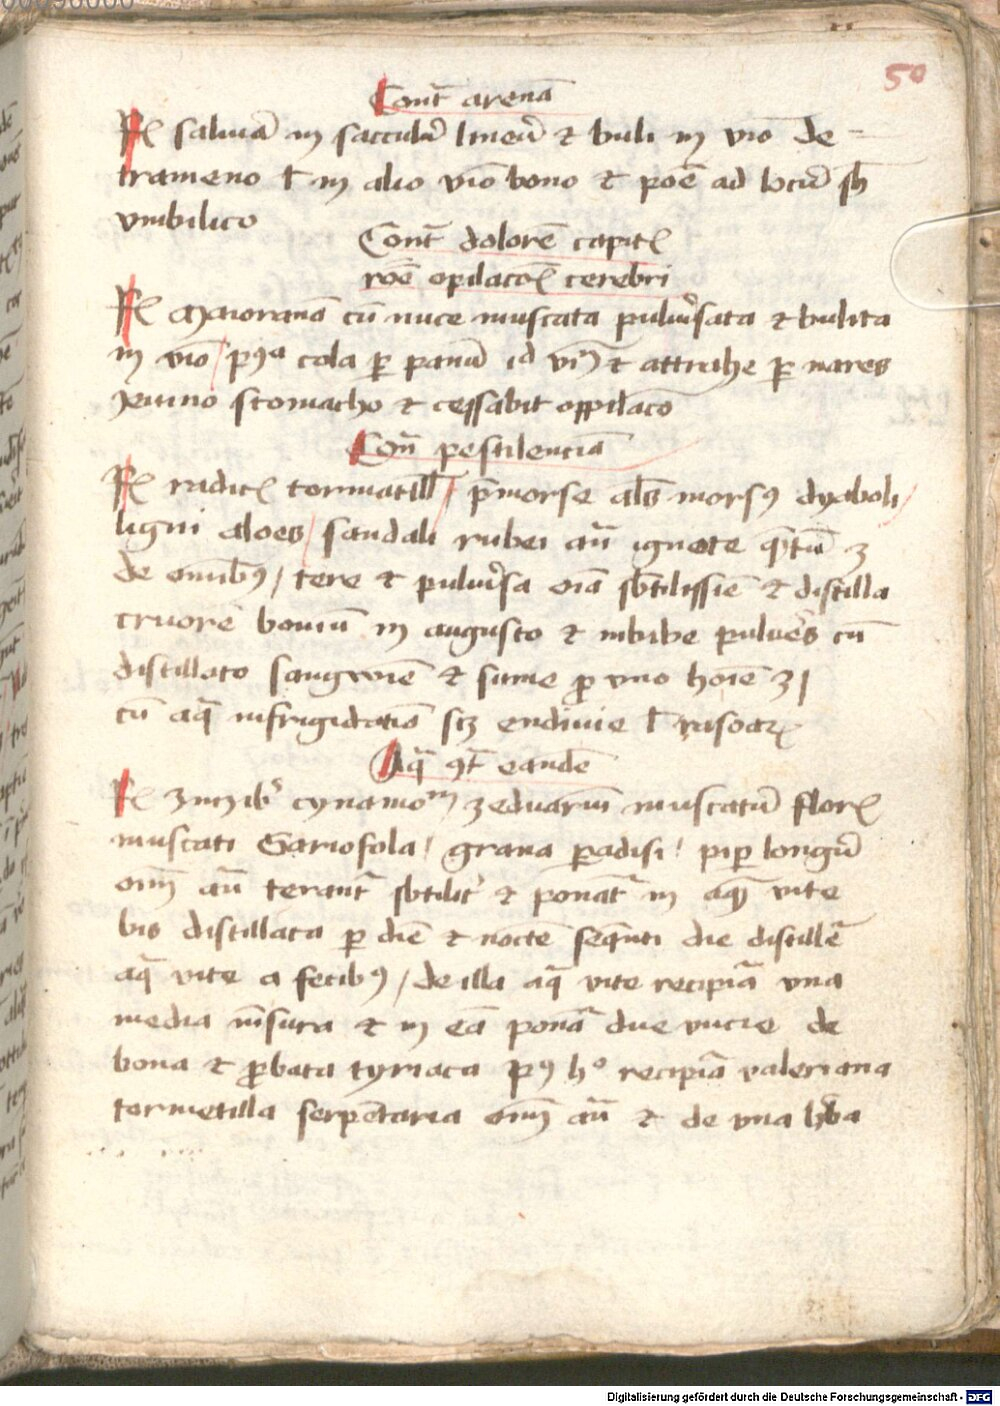 50
Cont̄ arenā
Rc̄ saluiā in sacculū lineū et buli in vīo de-
trameno ł in alio vīo bono et pōe ad locū sb̄
vmbilico
Cont̄ dolorē capitꝭ
rōe opilacōꝭ cerebri
Rc̄ Maioranā cū nuce muscata puluīsata et bulita
in vīo / pꝰᵃ cola ꝑ pannū id vīn et attrahe ꝑ nares
ieiuno stomacho et cessabit oppilacō
Con̄ pestilenciā
Rc̄ radicꝭ tormatill / p̄morse als̄ morsꝰ dyaboli /
ligni aloes / sandali rubei an̄ ignote qͣ̄tū ʒ
de omībꝰ / tere et puluīsa oīa sb̄tilissīe et distilla
cruorē bouinū in augusto et inbibe puluēs cū
distillato sangwīe et sume ꝓ vno hoīe ʒj
cū aq̄ infrigidatiō scꝫ endiuie ł rosaꝝ
Aq̄ ꝯt̄ eandē
Rc̄ Zinzibꝰ cynamoᵐ zeduariū muscatū florꝭ
muscati Gariofola / grana ꝑadisi / pip longū
om̄ an̄ terant̄ sb̄tilitͥ et ponāt in aqͣ vite
bis distillata ꝑ diē et nocte seq̄nti die distillet̄
aq̄ vite a fecibꝰ / de illa aq̄ vite recipiā vna
media mīsura et in eā ponāt due vncie de
bona et ꝓbata tyriaca pꝰ hº recipiā valeriana
tormetilla serpētaria om̄ an̄ et de vna hb̄a
Digitalisierung gefördert durch die Deutsche Forschungsgemeinschaft - DFG